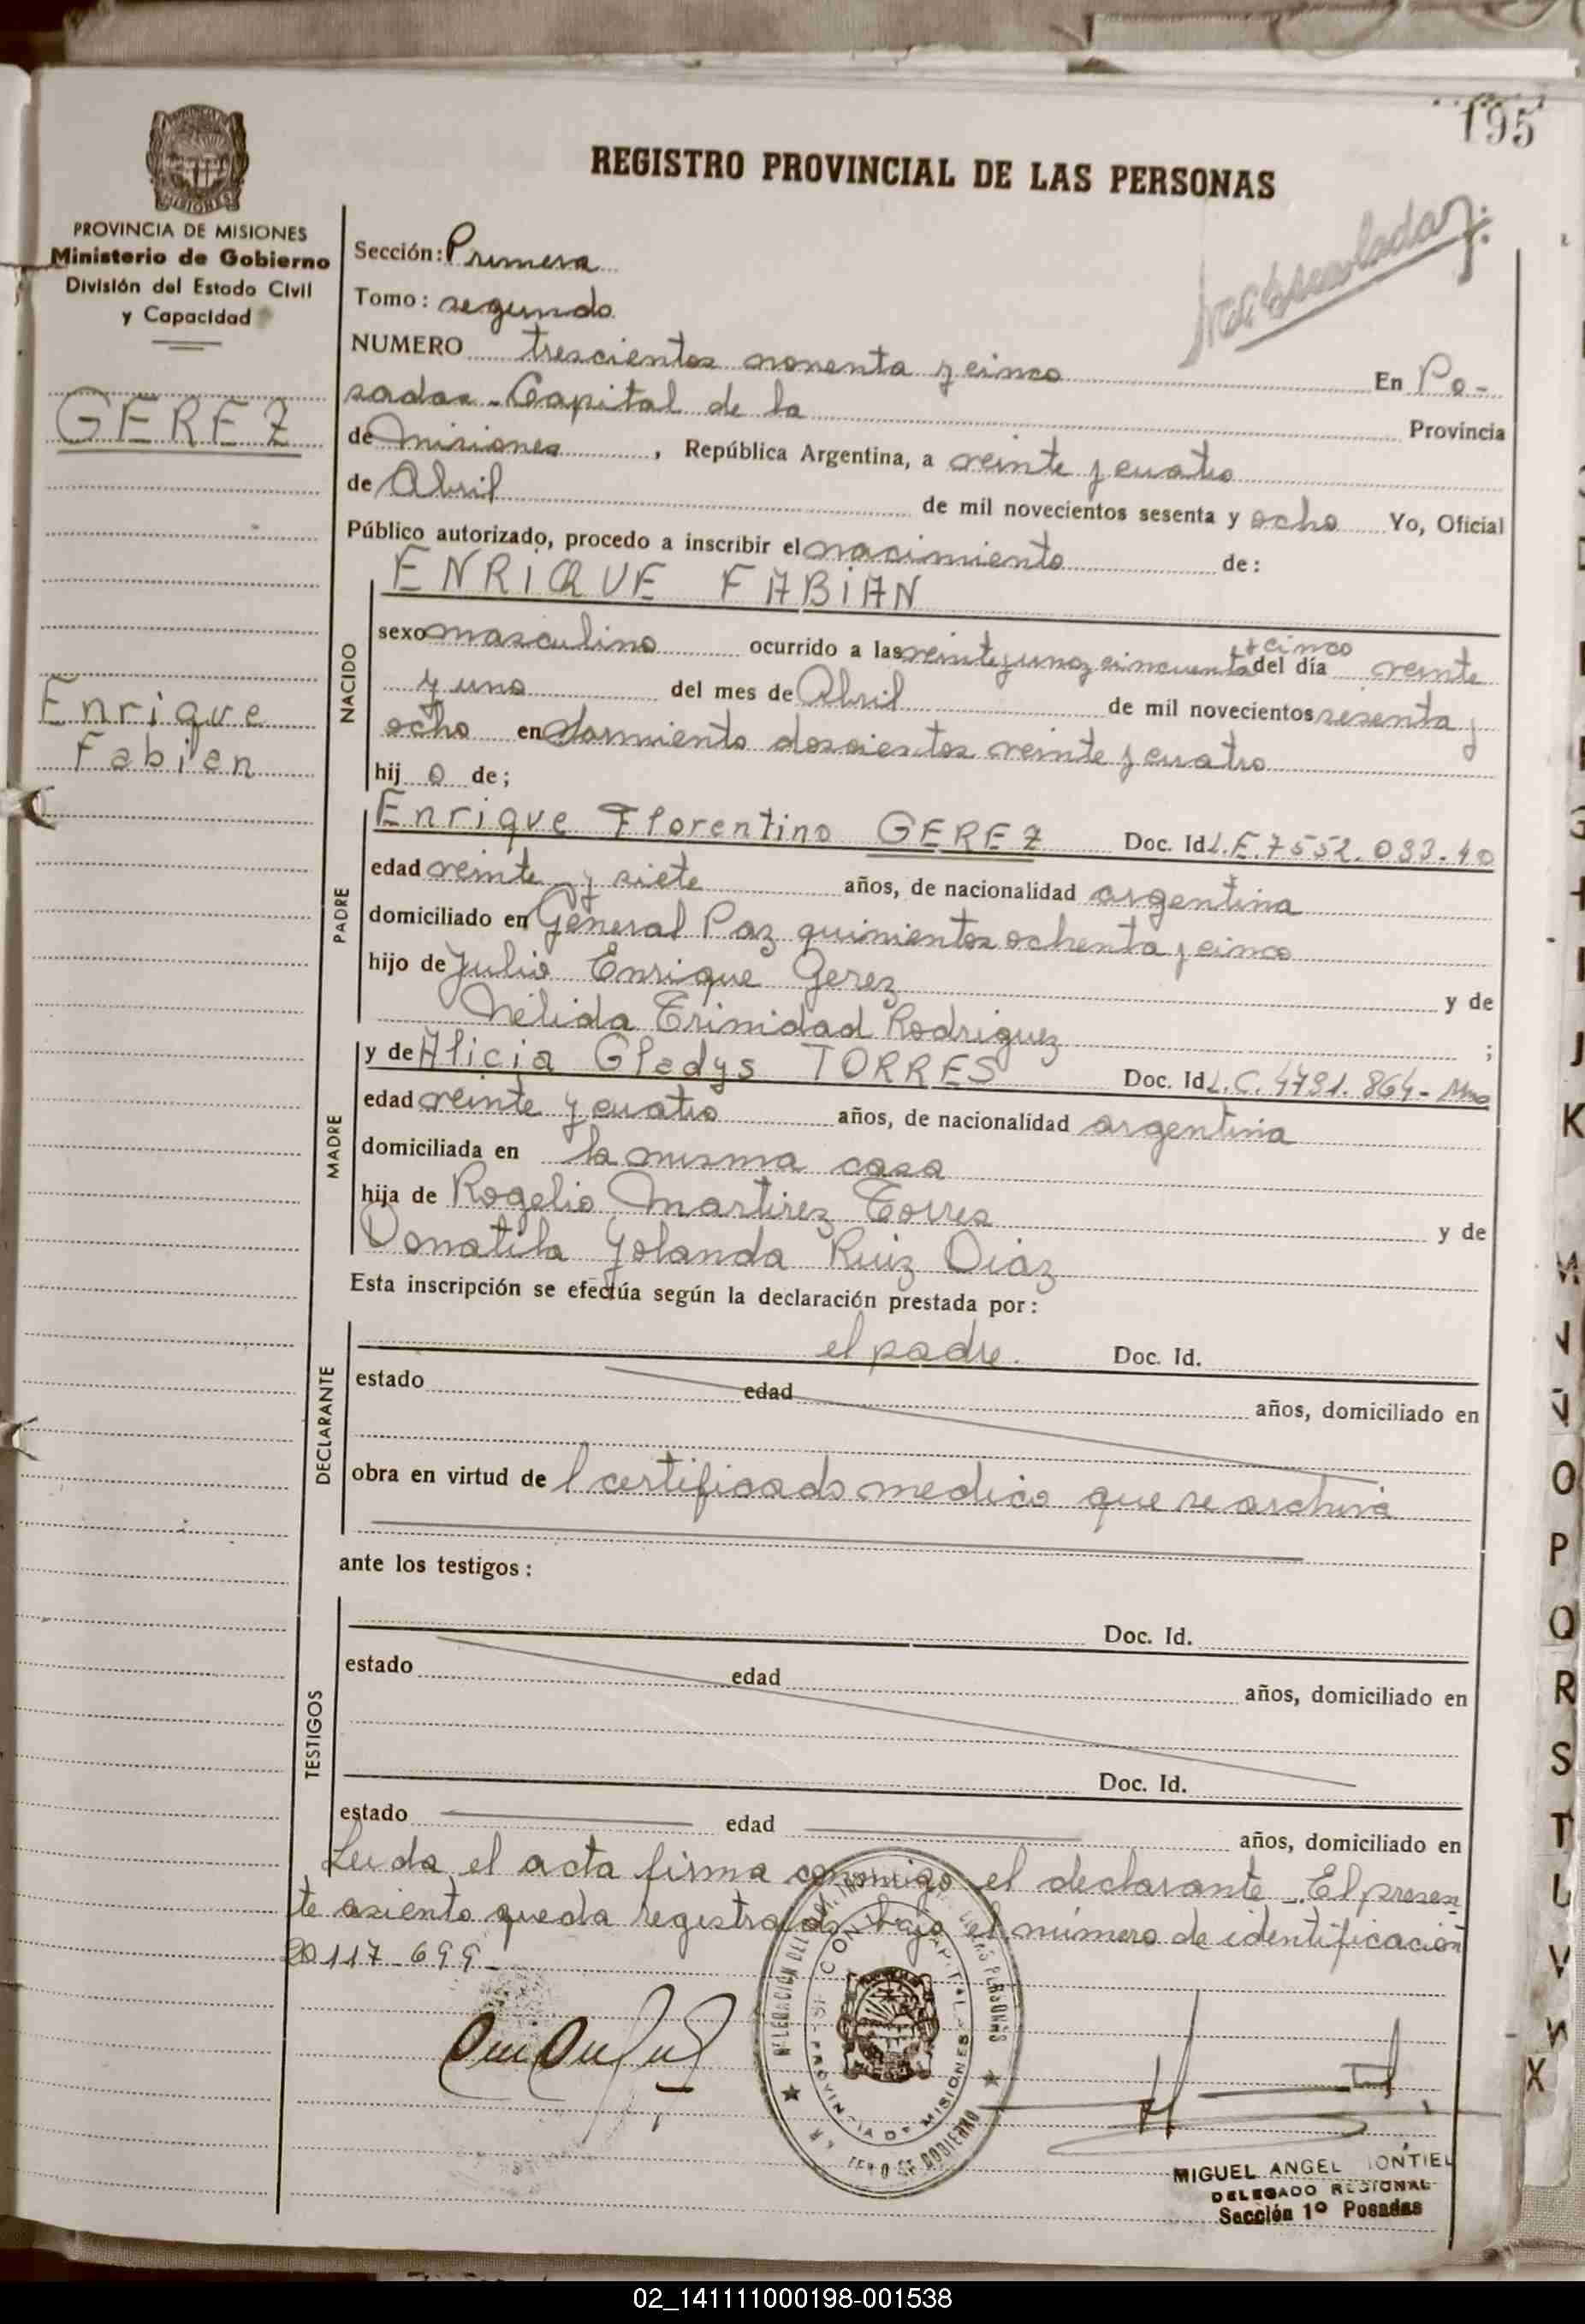 195
REGISTRO PROVINCIAL DE LAS PERSONAS
PROVINCIA DE MISIONES
Ministerio de Gobierno
División del Estado Civil
y Capacidad
GEREZ
Enrique
Fabian
Sección: Primera
Tomo: segundo
NUMERO trescientos noventa y cinco En Po-
sadas - Capital de la Provincia
de Misiones, República Argentina, a veinte y cuatro
de Abril de mil novecientos sesenta y ocho Yo, Oficial
Público autorizado, procedo a inscribir el nacimiento de:
ENRIQUE FABIAN
NACIDO
y cinco
sexo masculino ocurrido a las veinte y una y cincuenta del día veinte
y uno del mes de Abril de mil novecientos sesenta y
ocho en Sarmiento doscientos veinte y cuatro
hij o de;
PADRE
Enrique Florentino GEREZ Doc. Id L.E. 7552.093-40
edad veinte y siete años, de nacionalidad argentina
domiciliado en General Paz quinientos ochenta y cinco
hijo de Julio Enrique Gerez y de
Nélida Trinidad Rodriguez ;
MADRE
y de Alicia Gladys TORRES Doc. Id L.C. 4791.864- Mnes
edad veinte y cuatro años, de nacionalidad argentina
domiciliada en la misma casa
hija de Rogelio Martirez Torres y de
Donatila Yolanda Ruiz Diaz
Esta inscripción se efectúa según la declaración prestada por:
DECLARANTE
el padre. Doc. Id.
estado edad años, domiciliado en
obra en virtud de l certificado medico que se archiva
ante los testigos:
TESTIGOS
Doc. Id.
estado edad años, domiciliado en
Doc. Id.
estado edad años, domiciliado en
Leida el acta firma conmigo el declarante - El presen
te asiento queda registrado bajo el número de identificación
20 117-699-
PROVINCIA DE MISIONES
MIGUEL ANGEL MONTIEL
DELEGADO REGIONAL
Sección 1º Posadas
J
K
O
P
Q
R
S
T
V
X
02_141111000198-001538